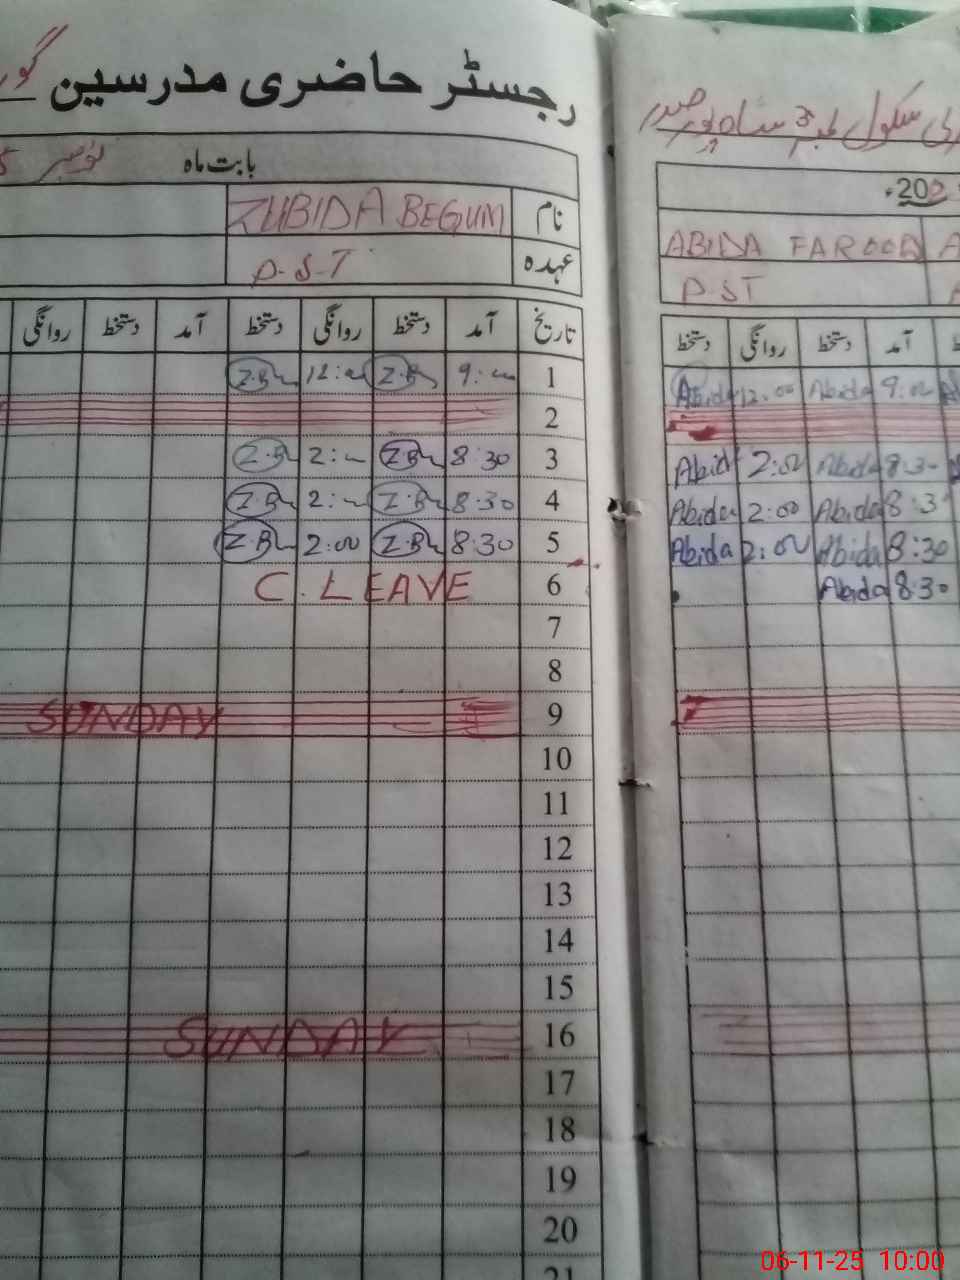 رجسٹر حاضری مدرسین
سکول نمبر 3
بابت ماہ نومبر
202
نام ZUBIDA BEGUM
عہدہ P.S.T
ABIDA FAROOQ
P.ST
تاریخ آمد دستخط روانگی دستخط آمد دستخط روانگی
آمد دستخط روانگی دستخط
1 9: Z.B 12: Z.B
9:00 Abida 12:00 Abida
2
3 8:30 Z.B 2: Z.B
8:3 Abida 2:00 Abid
4 8:30 Z.B 2: Z.B
8:3 Abida 2:00 Abida
5 8:30 Z.B 2:00 Z.B
8:30 Abida 2:00 Abida
6 C. LEAVE
8:30 Abida
7
8
9 SUNDAY
10
11
12
13
14
15
16 SUNDAY
17
18
19
20
21
06-11-25 10:00